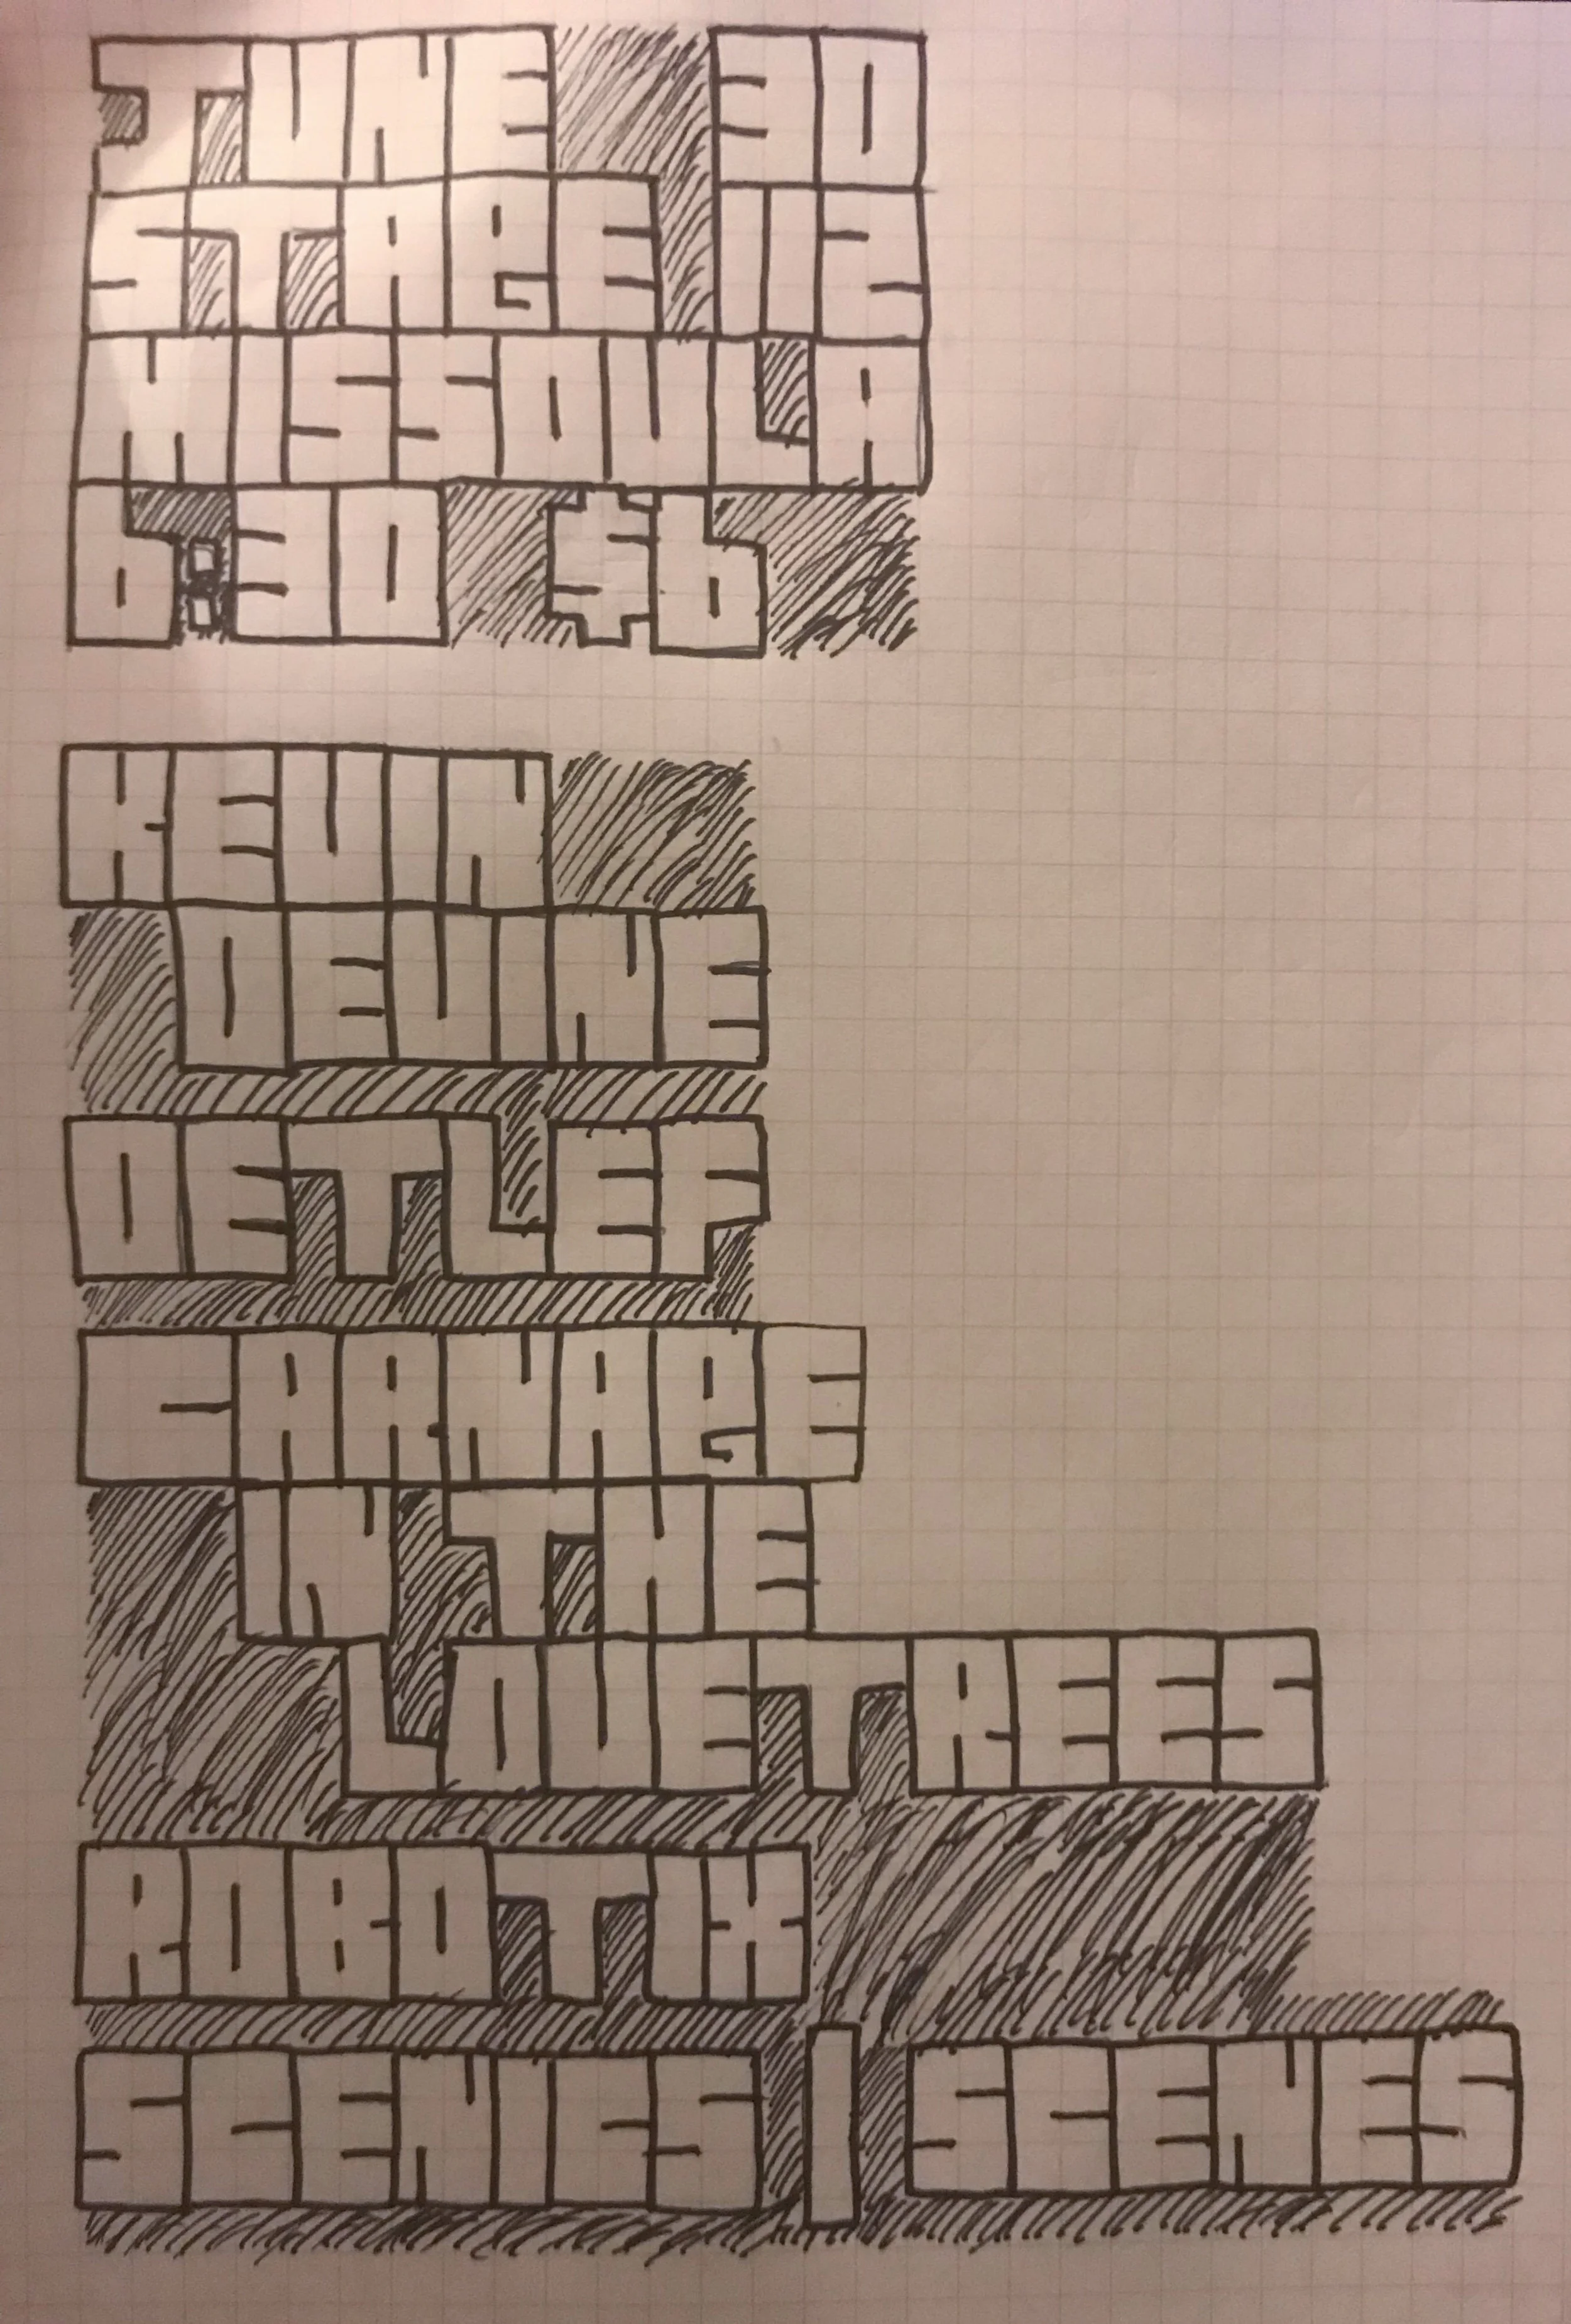 JUNE 30
STAGE 112
MISSOULA
6:30 $6
KEVIN
DEVINE
DETLEF
CARNAGE
IN THE
LOVETREES
ROBOTIX
SCENICS | SCENES